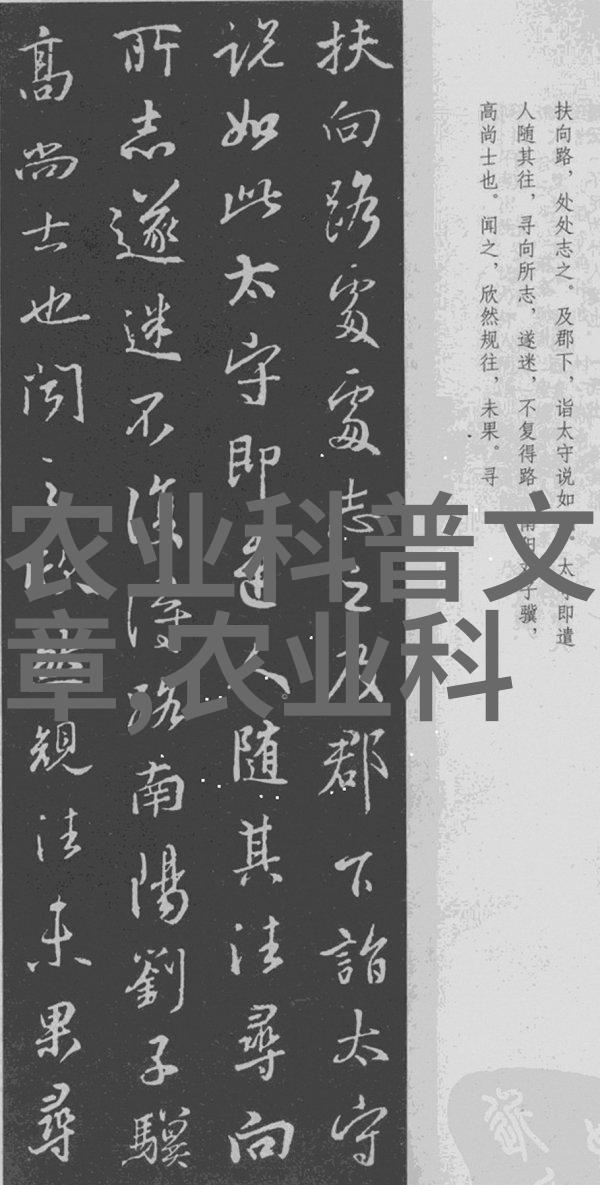 扶向路，处处志之。及郡下，诣太守说如。太即遣
人随其往，寻向所志，遂迷，不复得路南子骥，
高尚士也。闻之，欣然规往，未果。寻
扶向路處處志之及郡下詣太守
説如此太守即遣人随其往尋向
所志遂迷不復得路南陽劉子驥
髙尚士也闻之欣然規往未果尋
农业科普文
章,农业科